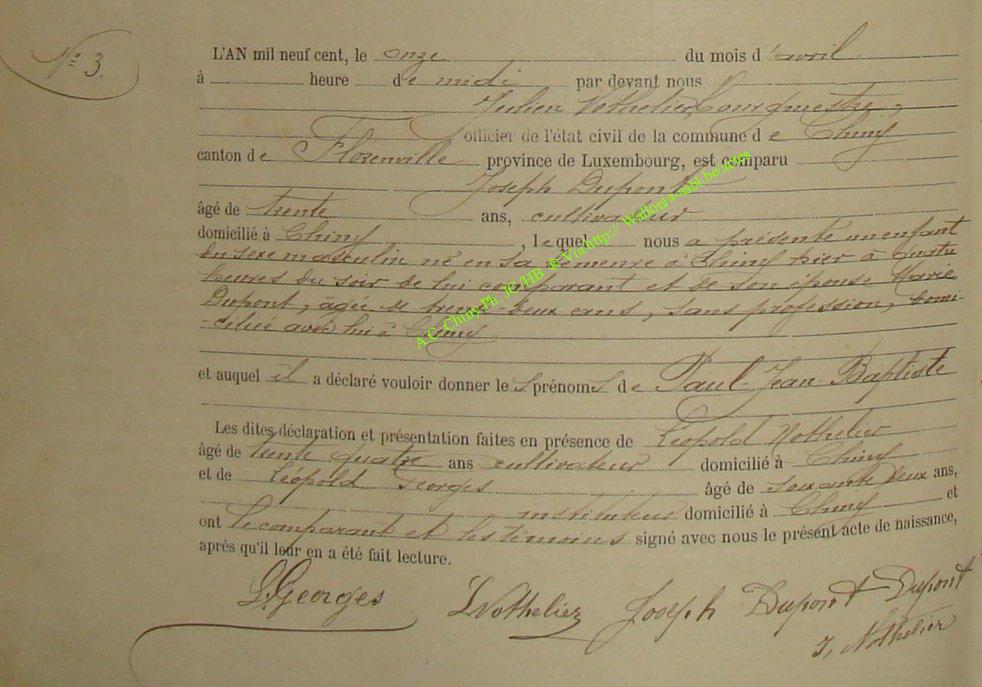 N° 3.
L'AN mil neuf cent, le onze du mois d'avril
à heure de midi par devant nous
Julien Nothelier, bourgmestre,
officier de l'état civil de la commune de Chiny
canton de Florenville province de Luxembourg, est comparu
Joseph Dupont
âgé de trente ans, cultivateur
domicilié à Chiny, lequel nous a présenté un enfant
du sexe masculin né en sa demeure à Chiny hier à quatre
heures du soir de lui comparant et de son épouse Marie
Dupont, âgée de trente-deux ans, sans profession, domi-
-ciliée avec lui à Chiny
et auquel il a déclaré vouloir donner les prénoms de Paul-Jean-Baptiste
Les dites déclaration et présentation faites en présence de Léopold Nothelier
âgé de trente quatre ans cultivateur domicilié à Chiny
et de Léopold Georges âgé de soixante deux ans,
instituteur domicilié à Chiny et
ont le comparant et les témoins signé avec nous le présent acte de naissance,
après qu'il leur en a été fait lecture.
L. Georges LNothelier Joseph Dupont Dupont
J. Nothelier